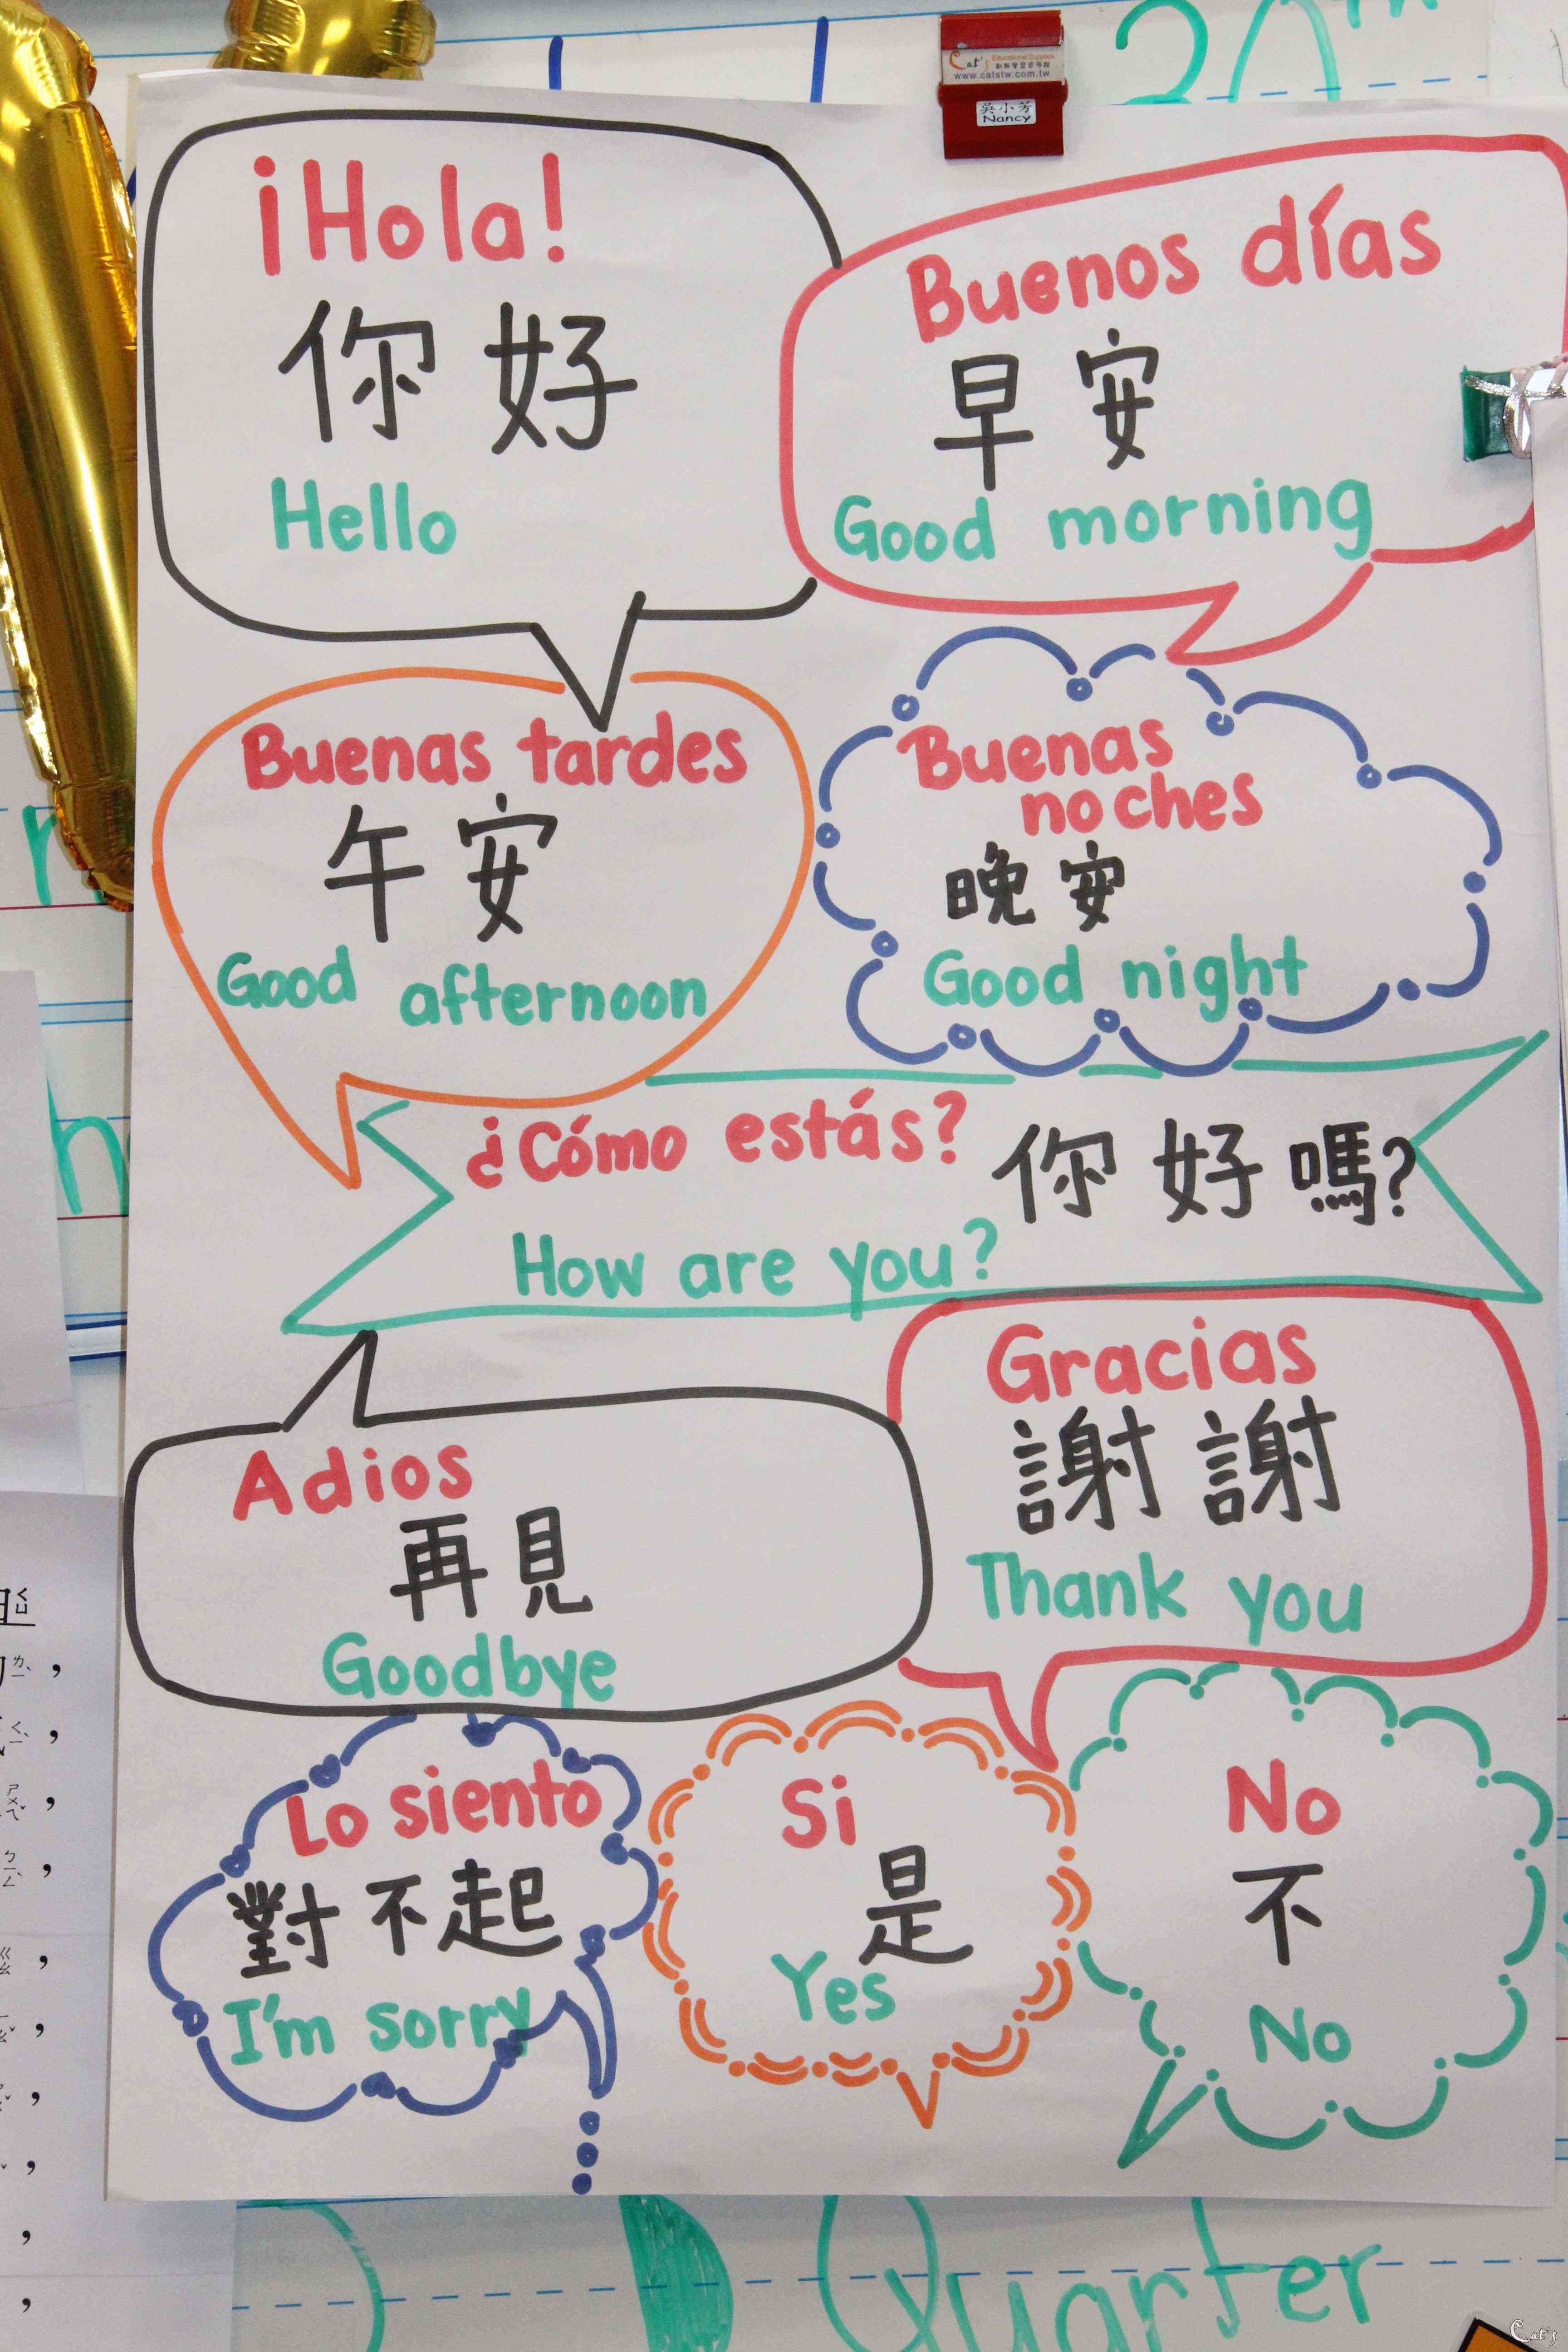 30th
Cat's Educational Supplies
www.catstw.com.tw
吳小芳
Nancy
¡Hola!
你好
Hello
Buenos días
早安
Good morning
Buenas tardes
午安
Good afternoon
Buenas
noches
晚安
Good night
¿Cómo estás?
你好嗎?
How are you?
Adios
再見
Goodbye
Gracias
謝謝
Thank you
Lo siento
對不起
I'm sorry
Si
是
Yes
No
不
No
Quarter
Cat's